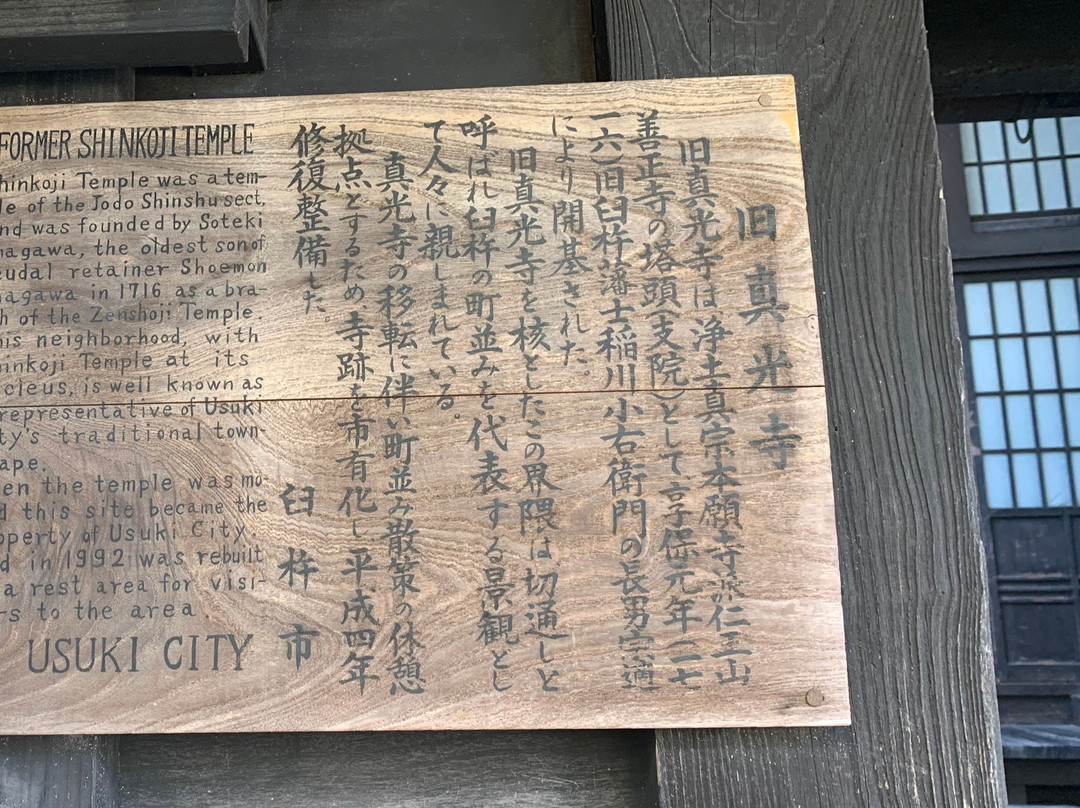 旧真光寺
旧真光寺は浄土真宗本願寺派仁王山
善正寺の塔頭(支院)として享保元年(一七
一六)旧臼杵藩士稲川小右衛門の長男宗適
により開基された。
旧真光寺を核としたこの界隈は切通しと
呼ばれ臼杵の町並みを代表する景観とし
て人々に親しまれている。
真光寺の移転に伴い町並み散策の休憩
拠点とするため寺跡を市有化し平成四年
修復整備した。
臼杵市
FORMER SHINKOJI TEMPLE
hinkoji Temple was a tem-
le of the Jodo Shinshu sect,
nd was founded by Soteki
nagawa, the oldest son of
eudal retainer Shoemon
nagawa in 1716 as a bra-
h of the Zenshoji Temple.
his neighborhood, with
hinkoji Temple at its
ucleus, is well known as
representative of Usuki
ty's traditional town-
ape.
en the temple was mo-
d this site became the
operty of Usuki City
d in 1992 was rebuilt
a rest area for visi-
rs to the area
USUKI CITY